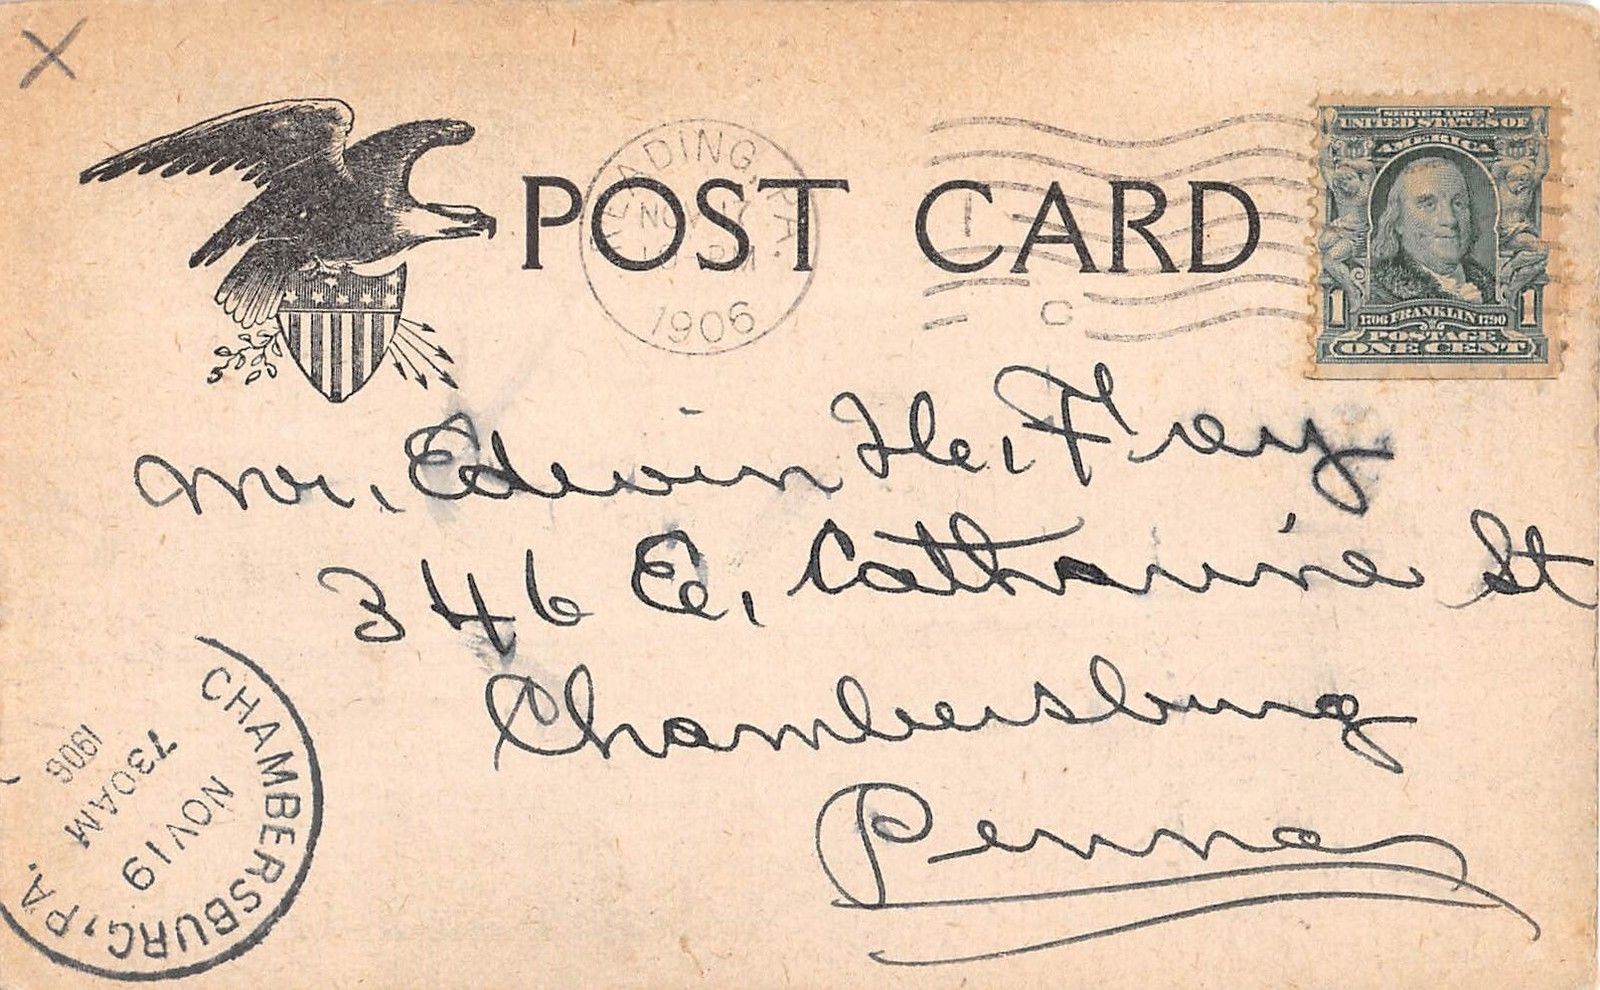 X
POST CARD
READING, PA.
NOV 17
PM
1906
C
SERIES 1902
UNITED STATES OF
AMERICA
1 1706 FRANKLIN 1790 1
POSTAGE
ONE CENT
Mr. Edwin He. Frey
346 E. Catharine St
Chambersburg
Penna
CHAMBERSBURG, PA.
NOV 19
730AM
1906